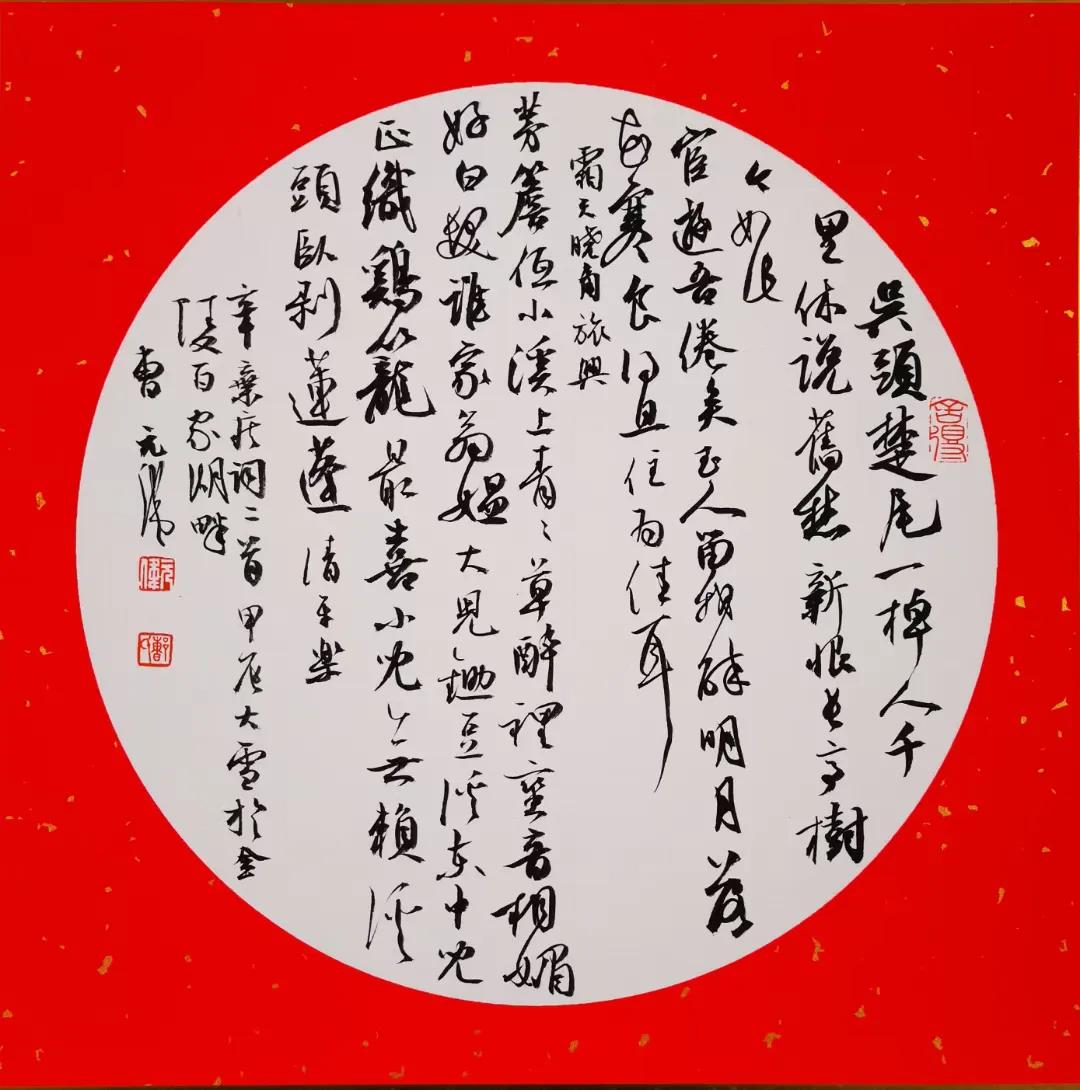 吳頭楚尾一棹人千
里休说舊愁新恨长亭樹
今如此
官遊吾倦矣玉人留我醉明月落
花寒食得且住为佳耳
霜天晓角旅興
茅簷低小溪上青々草醉裡蛮音相媚
好白髮誰家翁媪大兒鋤豆溪东中兒
正織鷄籠最喜小兒亡賴溪
頭臥剥蓮蓬清平樂
辛棄疾词二首甲辰大雪於金
陵百家湖畔
曹元伟
舍得
元偉